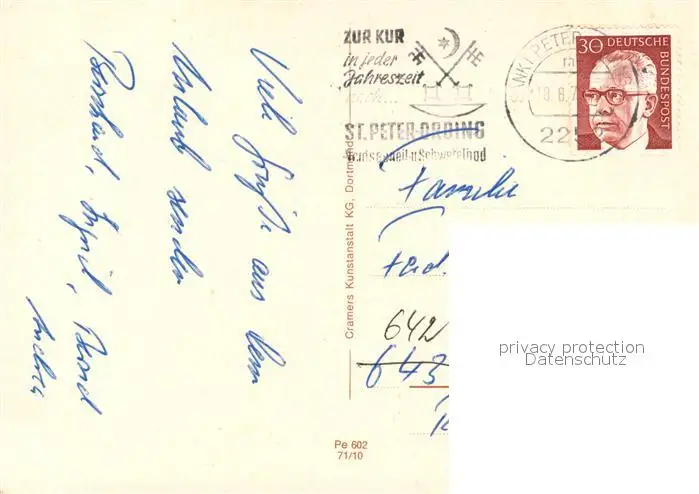 Viele Grüße aus dem
Urlaub senden
Bernhard, Ingrid, Bernd
Andrea
ZUR KUR
in jeder
Jahreszeit
nach...
ST. PETER-ORDING
Nordseeheil-u Schwefelbad
SANKT PETER
18.6.7
225
30 DEUTSCHE
BUNDESPOST
Familie
Ferd.
642
643
Cramers Kunstanstalt KG, Dortmund
Pe 602
71/10
privacy protection
Datenschutz